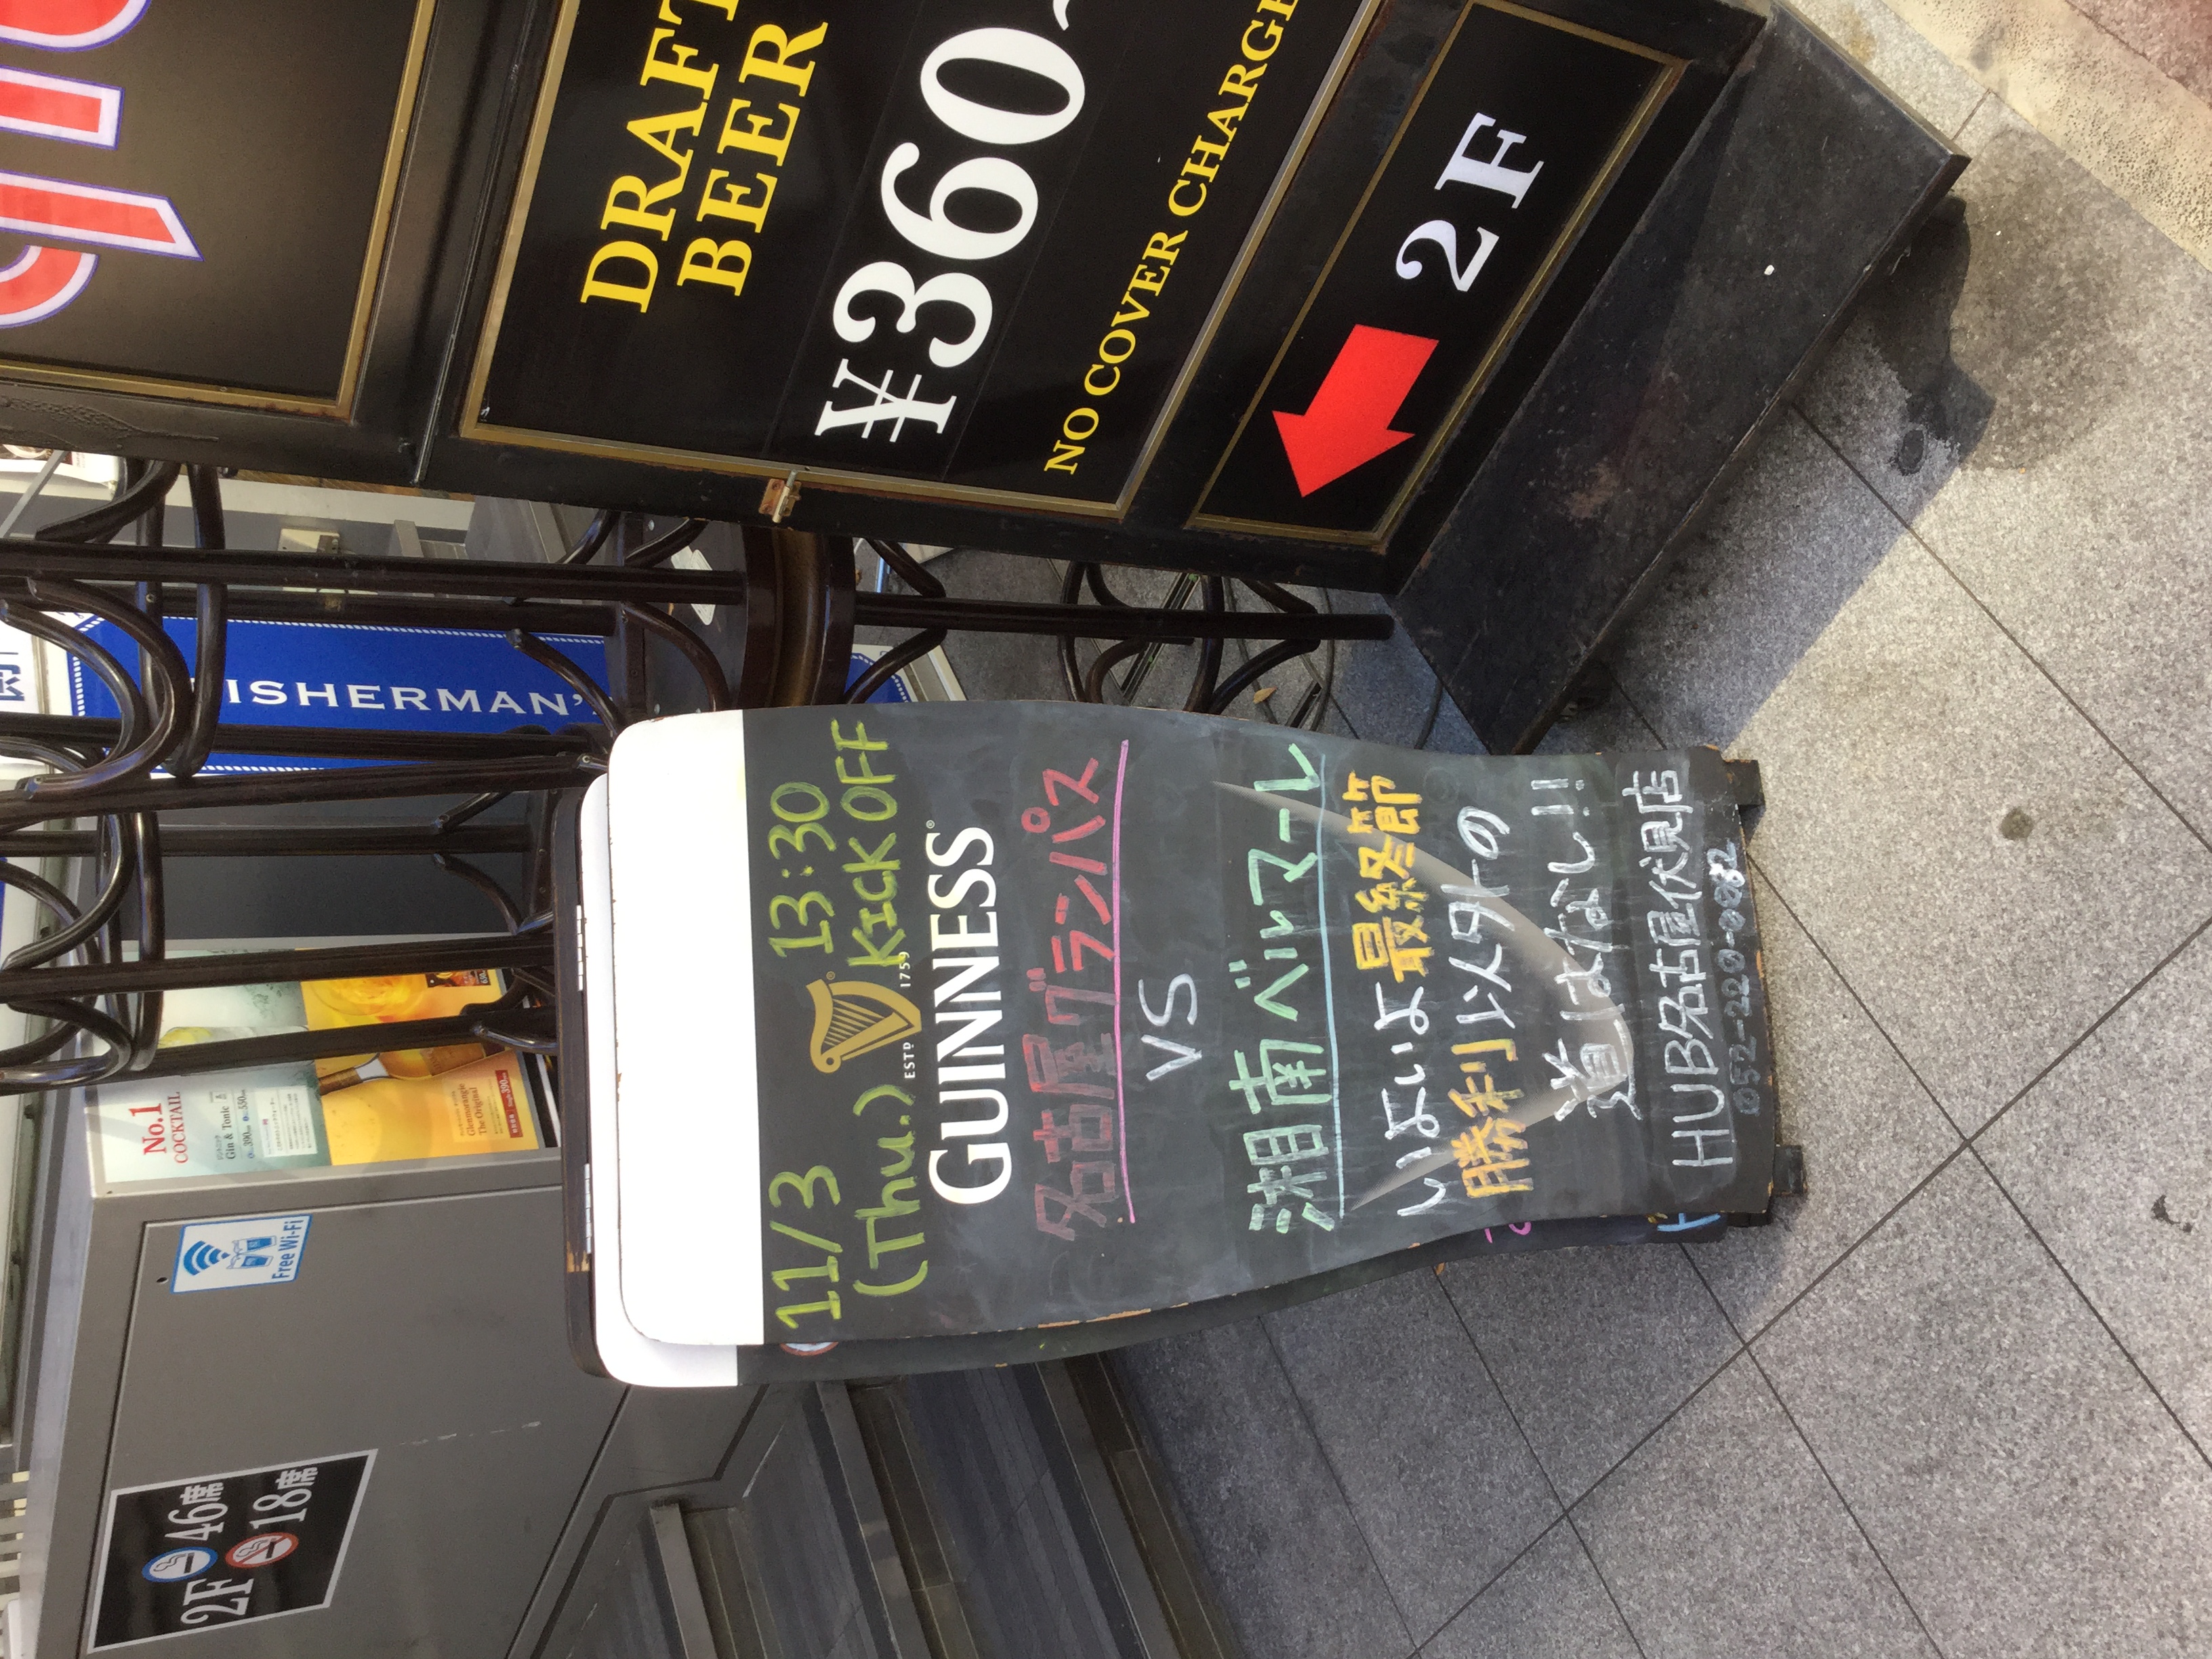 DRAFT
BEER
¥360~
NO COVER CHARGE
2F
ISHERMAN'
11/3 13:30
(Thu.) KICK OFF
ESTD 1759
GUINNESS®
名古屋グランパス
VS
湘南ベルマーレ
いよいよ最終節
勝利以外の
道はなし!!
HUB名古屋伏見店
052-220-0082
No.1
COCKTAIL
Gin & Tonic
Glenmorangie
The Original
Free Wi-Fi
2F 46席
18席